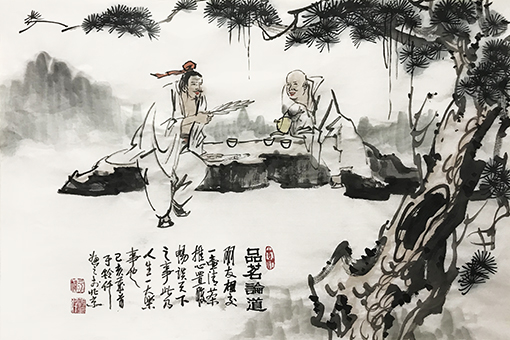 品茗論道
朋友相交
一壶清茶
推心置腹
暢談天下
之事此乃
人生一大樂
事也
己亥
北京